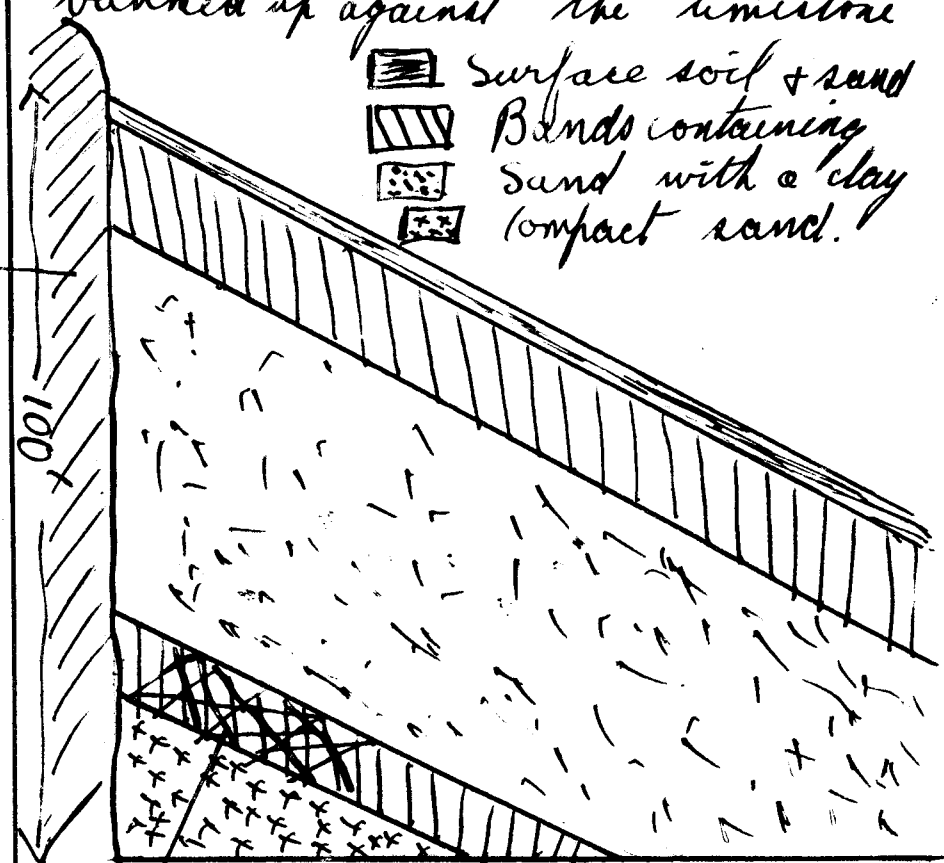 banked up against the limestone
Surface soil + sand
Bands containing
Sand with a clay
Compact sand.
100